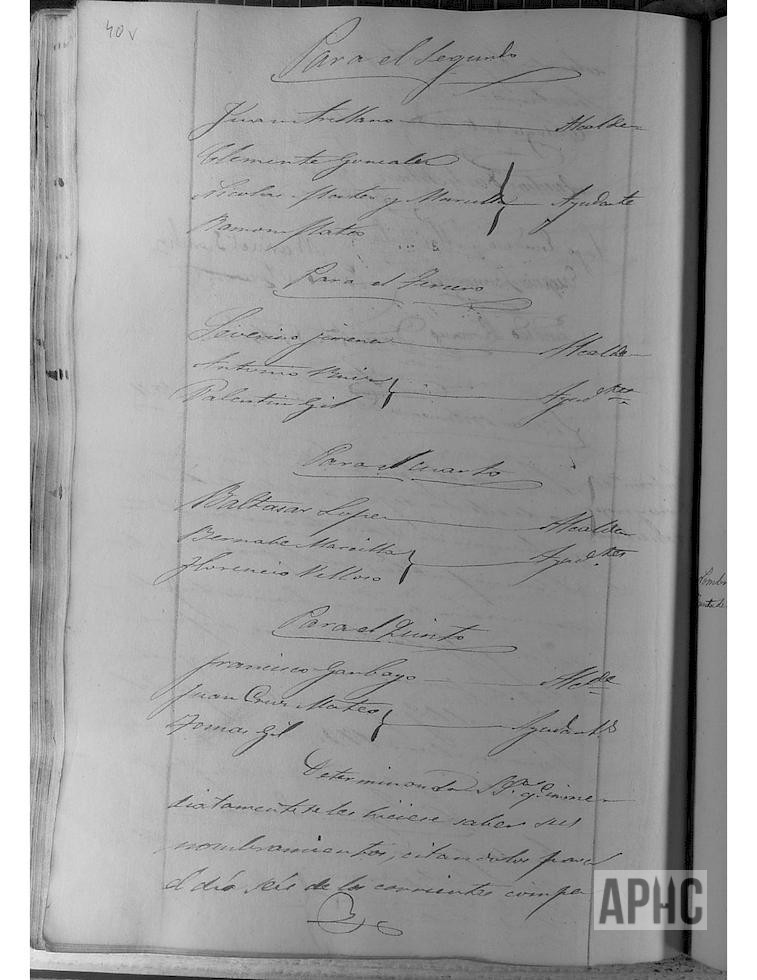 40v
Para el Segundo
Juan Arellano Alcalde
Clemente Gonzalez
Nicolas Montes y Marcilla Ayudante
Ramon Mateo
Para el Tercero
Severino Jimenez Alcalde
Antonio Ruiz
Valentin Gil Ayudtes
Para el Cuarto
Baltasar Lopez Alcalde
Bernabe Marcilla Ayudtes
Florencio Velloso
Para el Quinto
Francisco Garbayo Alcde
Juan Cruz Mateo
Tomas Gil Ayudants
Determinando S.S. qe. inme
diatamente se les hiciese saber sus
nombramientos, citandolos para
el dia seis de los corrientes compa
APHC